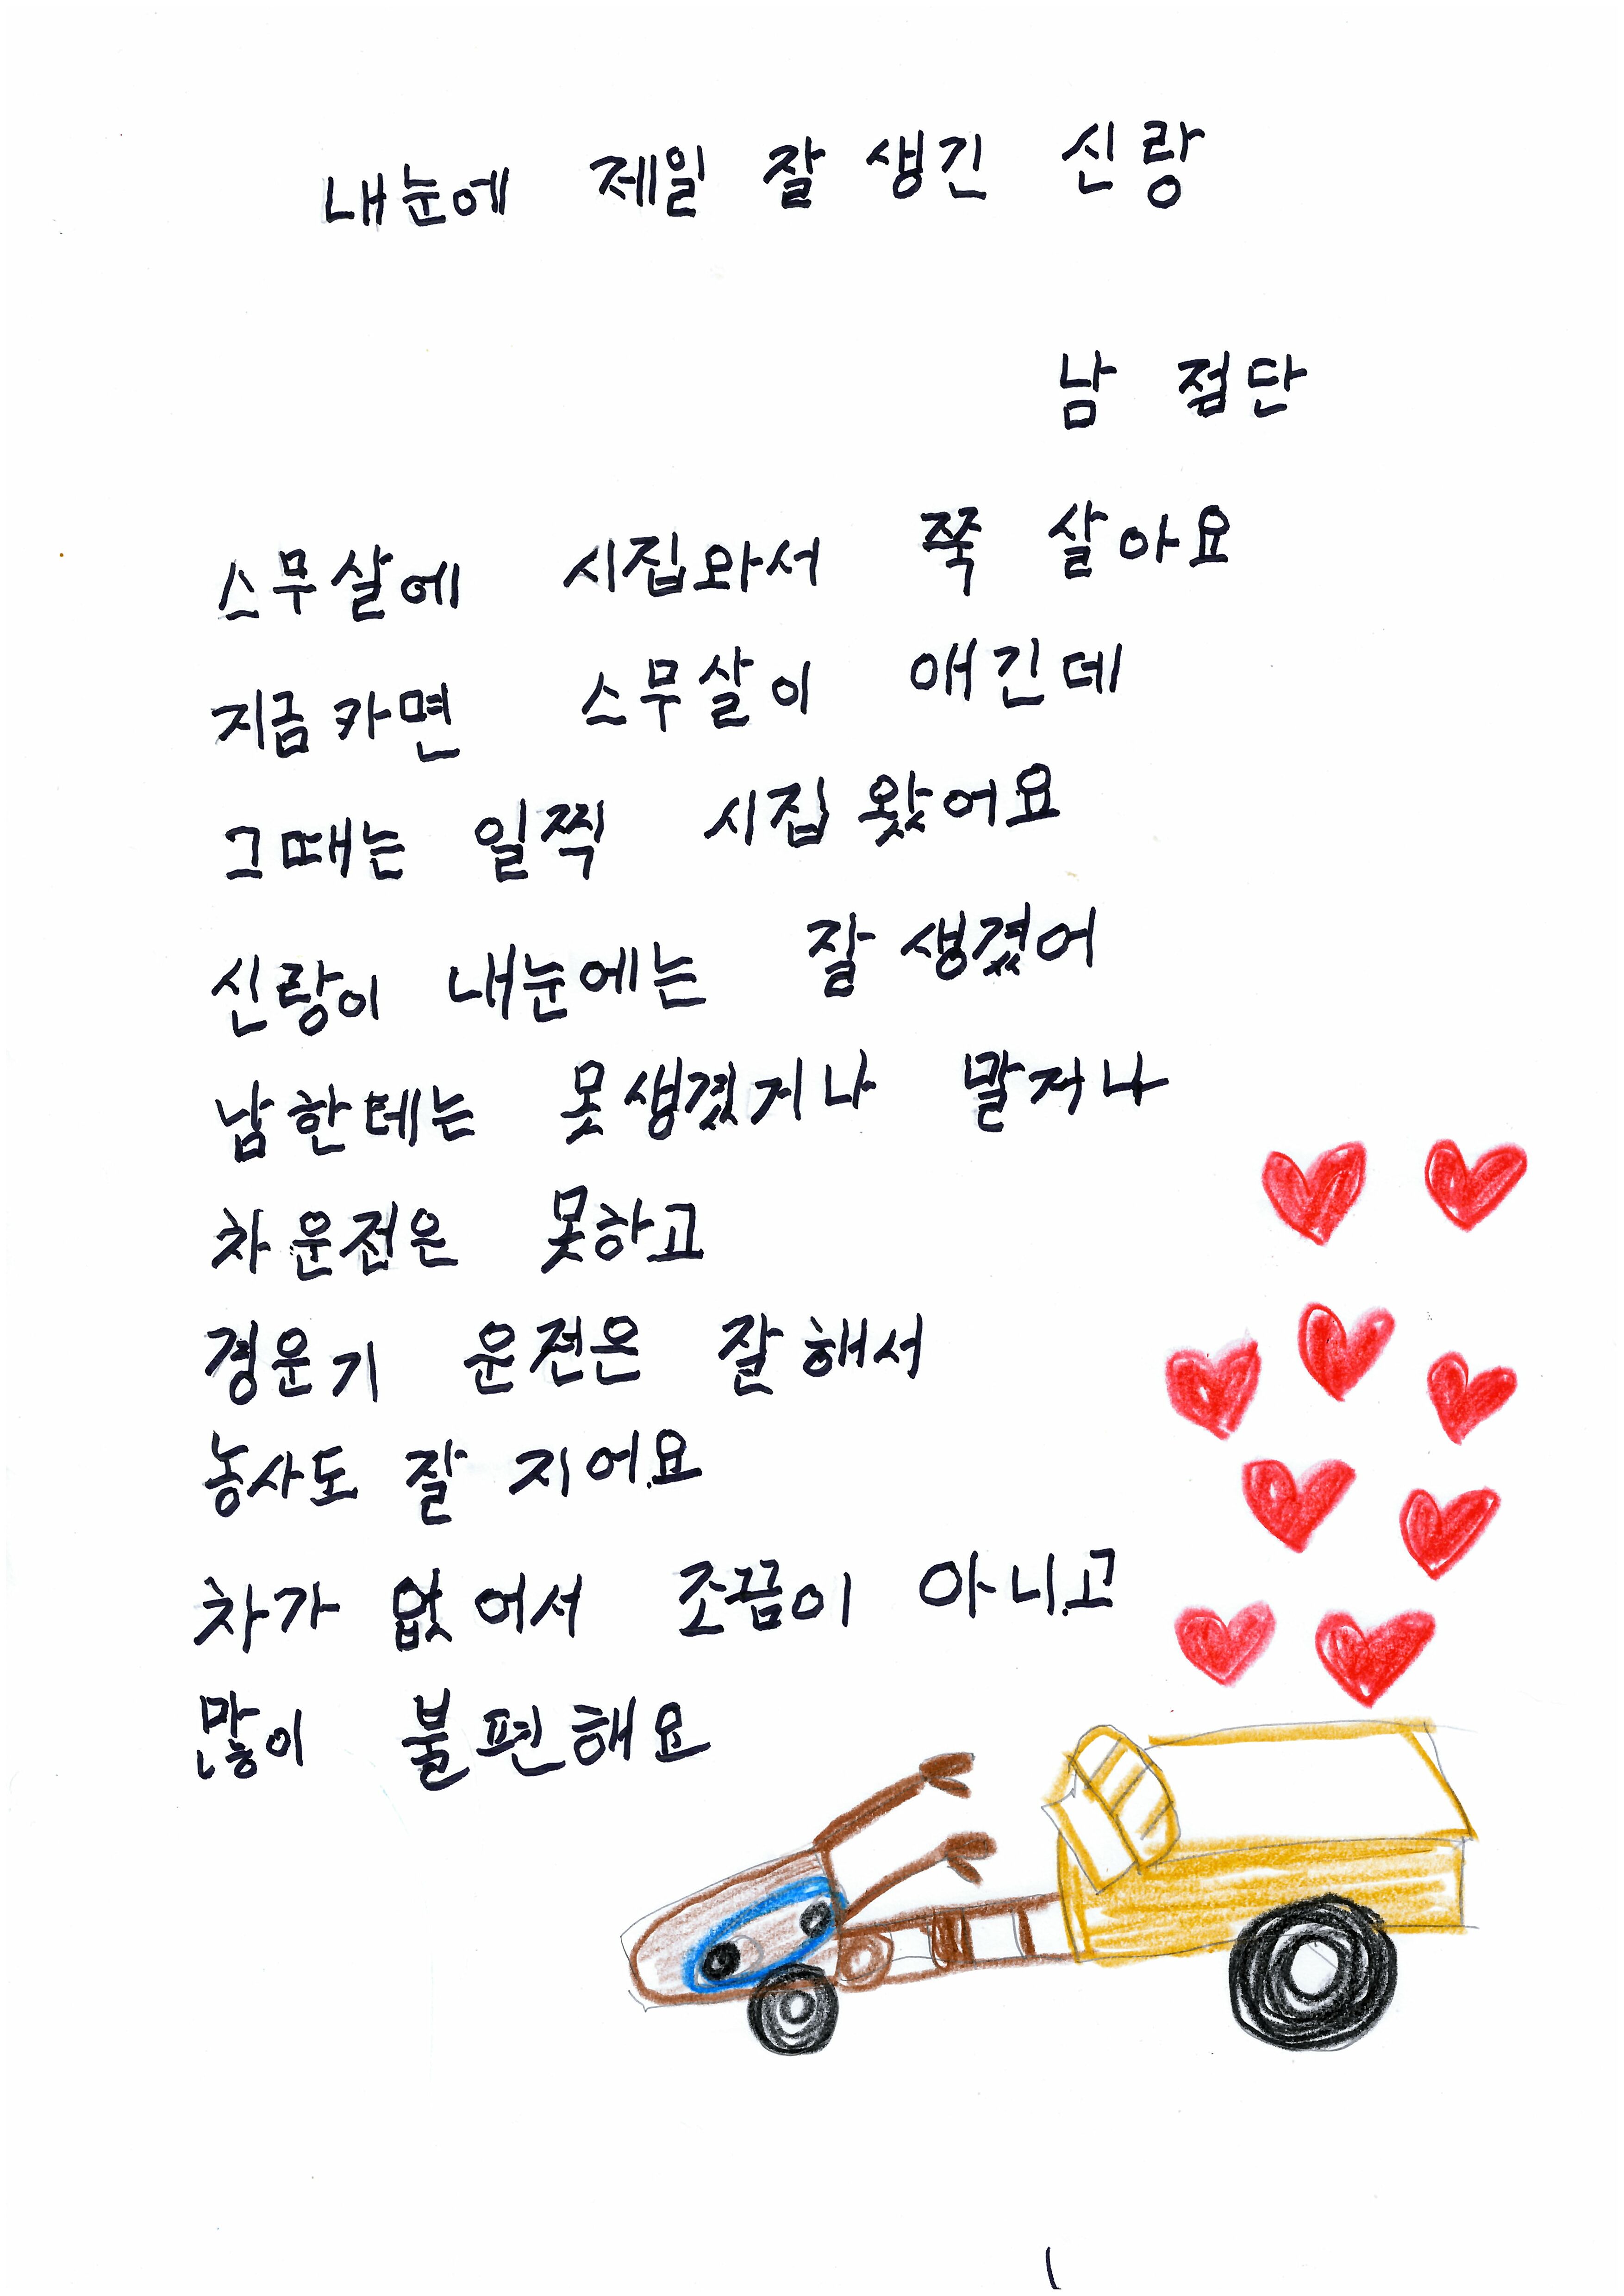 내눈에 제일 잘 생긴 신랑
남 점단
스무살에 시집와서 쭉 살아요
지금카면 스무살이 애긴데
그때는 일찍 시집왔어요
신랑이 내눈에는 잘 생겼어
남한테는 못생겼거나 말거나
차운전은 못하고
경운기 운전은 잘해서
농사도 잘 지어요
차가 없어서 조끔이 아니고
많이 불편해요